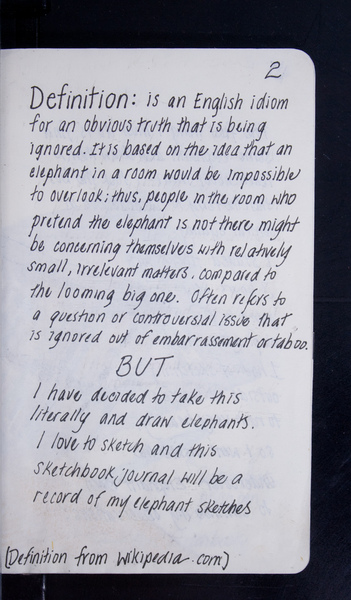 2
Definition: is an English idiom
for an obvious truth that is being
ignored. It is based on the idea that an
elephant in a room would be impossible
to overlook; thus, people in the room who
pretend the elephant is not there might
be concerning themselves with relatively
small, irrelevant matters. compared to
the looming big one. Often refers to
a question or controversial issue that
is ignored out of embarrassement or taboo.
BUT
I have decided to take this
literally and draw elephants.
I love to sketch and this
sketchbook, journal will be a
record of my elephant sketches
(Definition from Wikipedia.com)